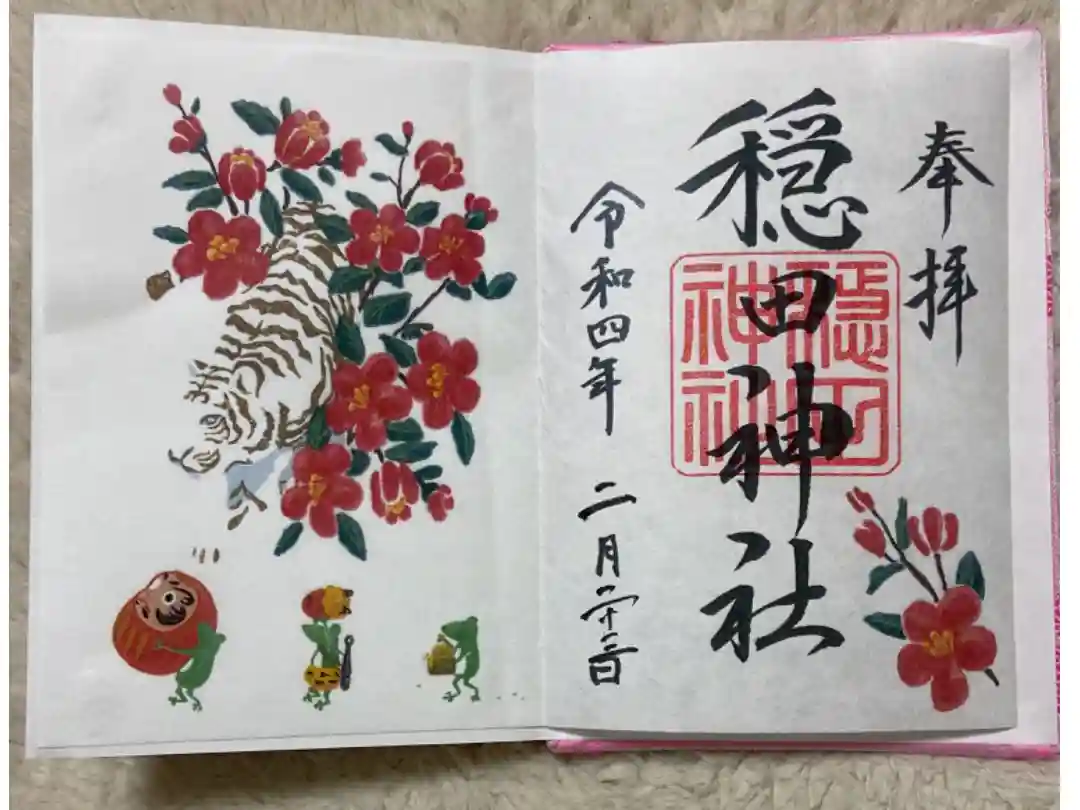 奉拝
穏田神社
令和四年 二月二十三日
穏田
神社